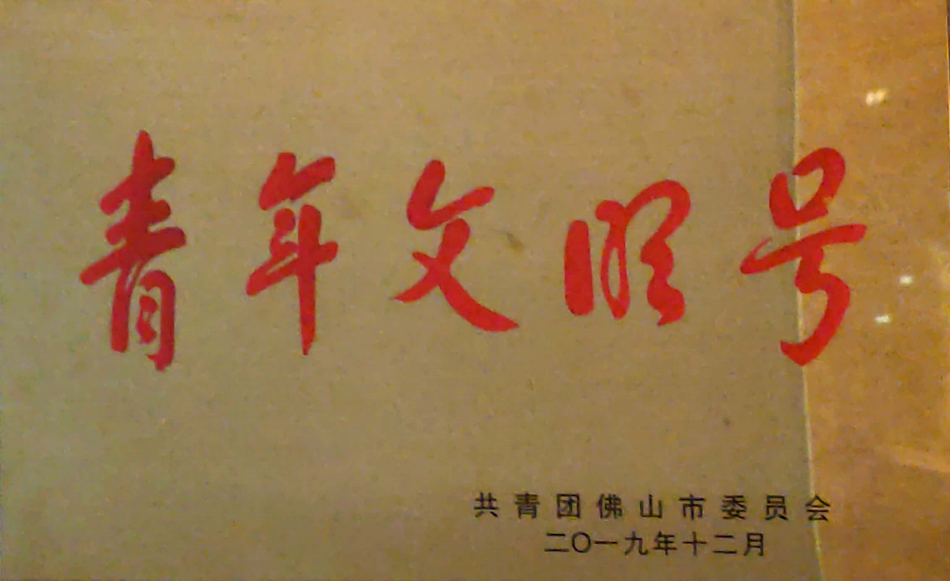 青年文明号
共青团佛山市委员会
二〇一九年十二月